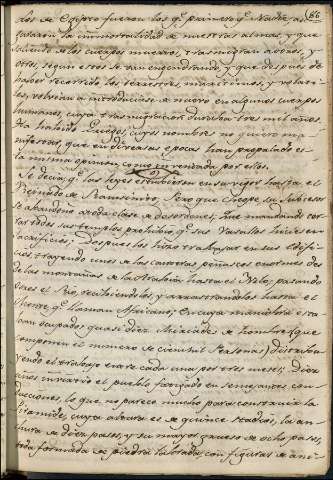 (86
los de Egipto fueron los qe primero qe Nadie, as
la inmortalidad de nuestras almas, y que
saliendo de los cuerpos muertos, trasmigran a otros, y
otros, segun estos se van engendrando, y que despues de
haber recorrido los terrestres, maritimos, y volati-
les, volvian a introducirse de nuevo en algunos cuerpos
humanos, cuya trasmigracion duraba tres mil años.
Ha habido Griegos cuyos nombres no quiero ma-
nifestar, que en diversas epocas han propalado es-
ta misma opinion, como inventada por ellos.
Se decia qe las leyes estubieron en su vigor hasta el
Reinado de Ransinito. Pero que Cheope su Subcesor
se abandono a toda clase de desordenes, que mandando cer-
rar todos sus templos prohibio qe sus Vasallos hiciesen
sacrificios: Despues los hizo trabajar en sus edificios
trayendo unos de las canteras peñascos enormes des-
de las montañas de la Arabia hasta el Nilo: pasando
otros el Rio, recibiendolos, y arrastrandolos hasta el
Monte qe llaman Africano; En cuya maniobra esta-
ban ocupados quasi diez de hombres (que
componen el numero de cien mil Personas) distribu-
yendo el trabajo entre cada una por tres meses; Diez
años invirtio el pueblo fatigado en semejantes con-
ducciones, lo que no parece mucho para construir la
Piramide, cuya altura es de quince stadias, la an-
chura de diez pasos, y su mayor grueso de ocho pasos,
toda formada de piedra labrada, con figuras de ani-